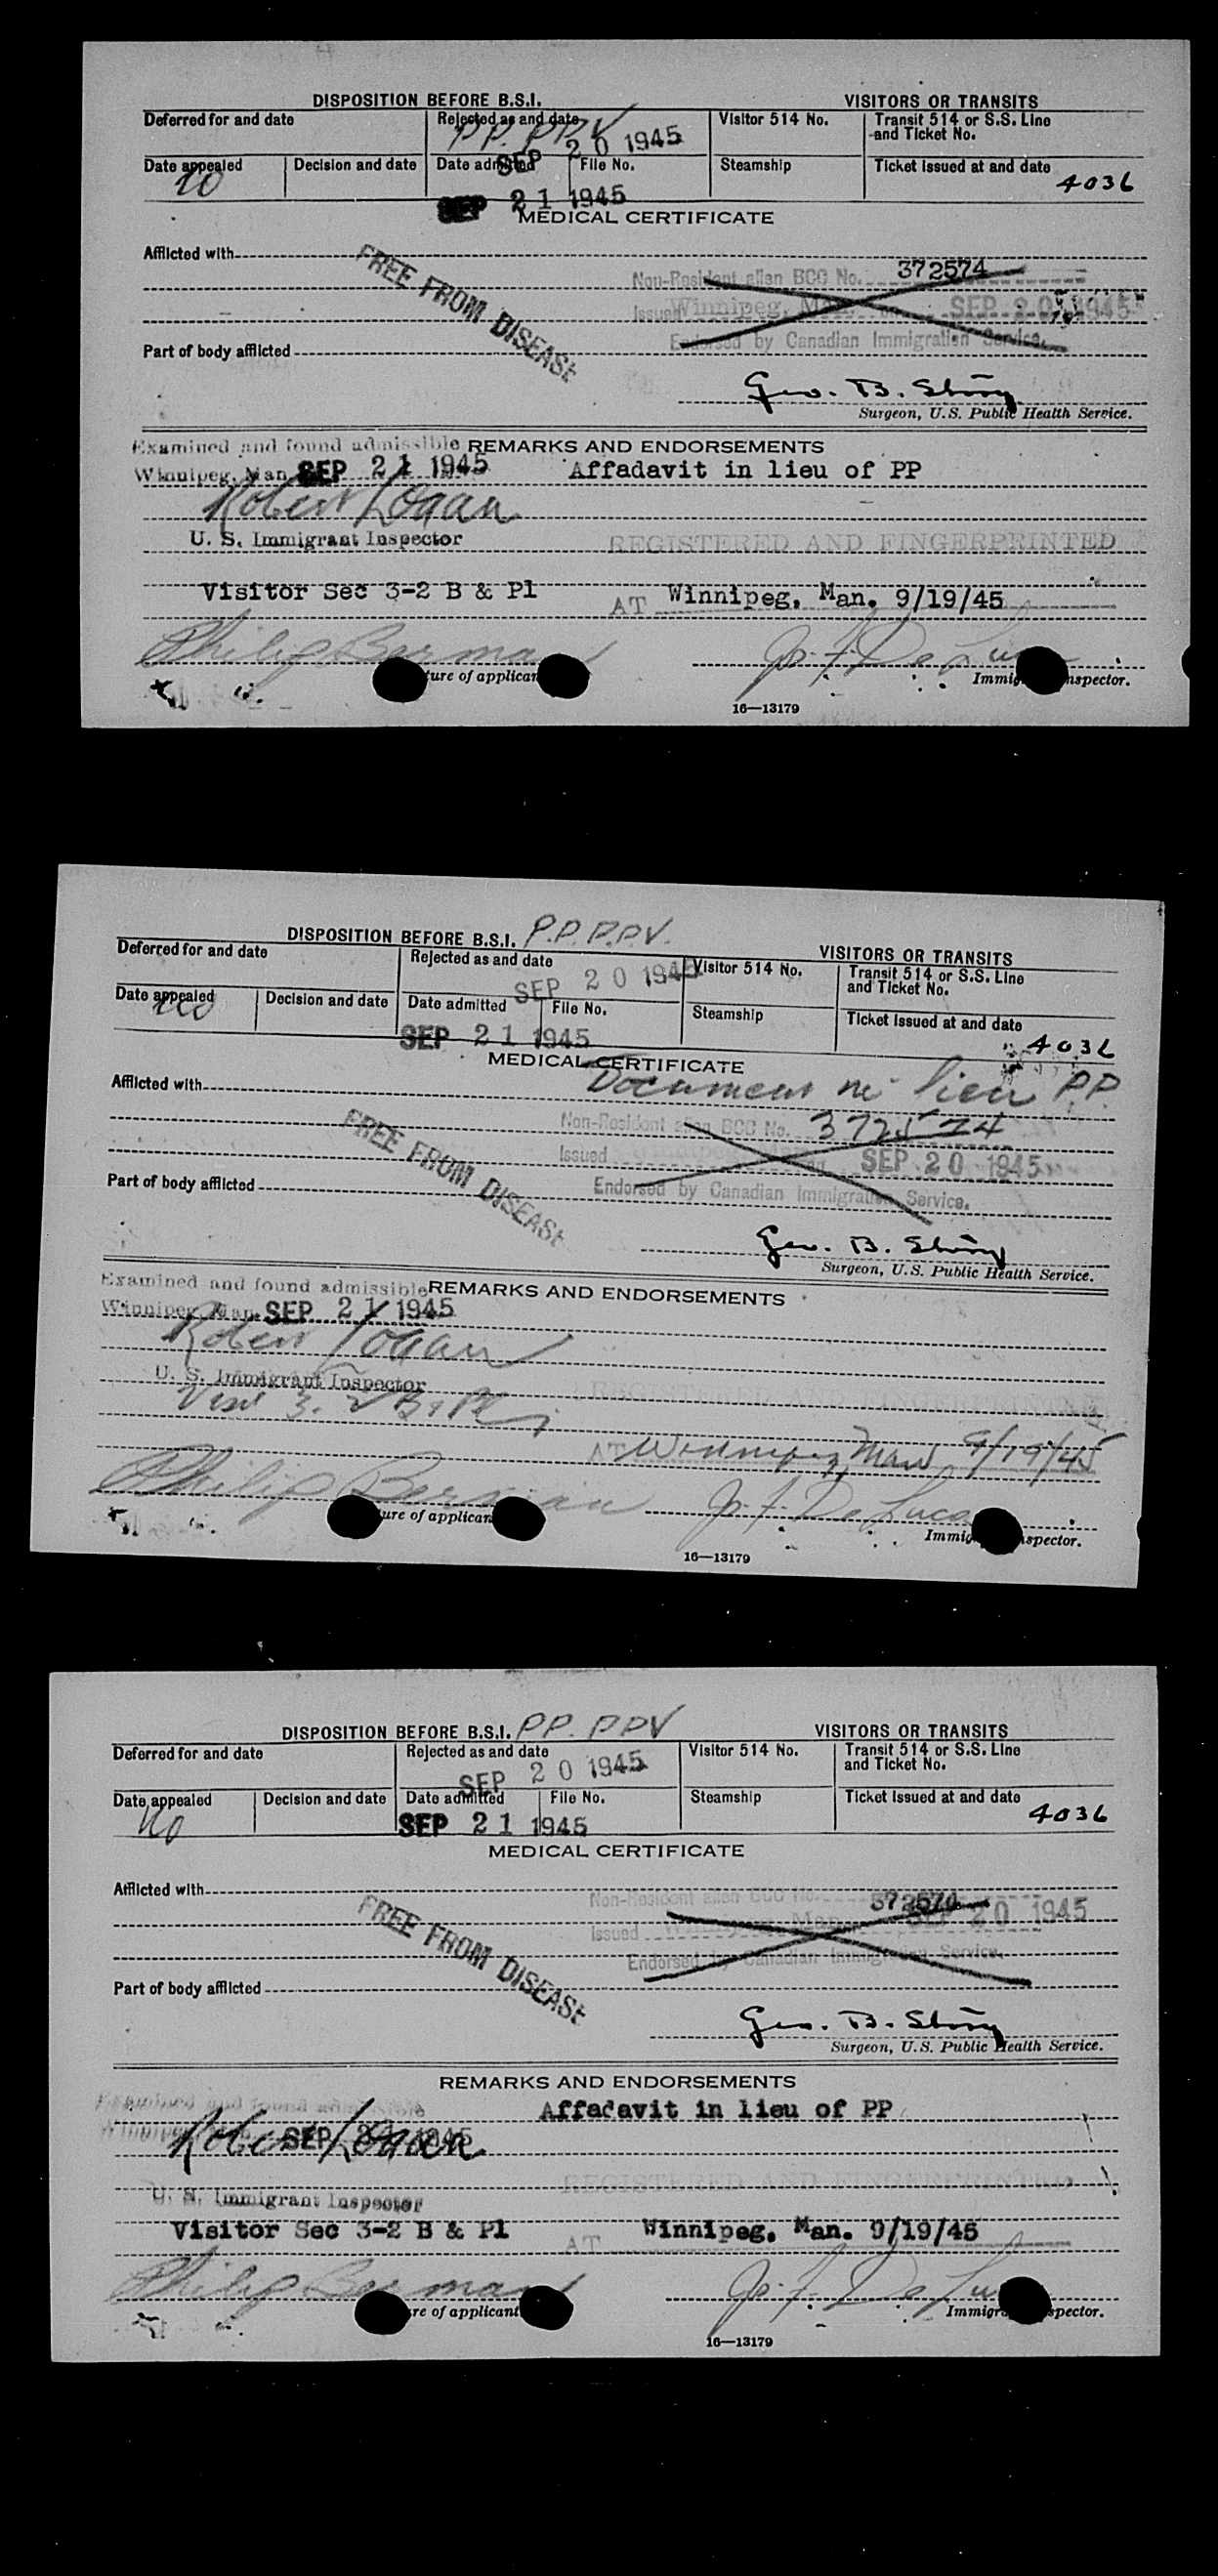 DISPOSITION BEFORE B.S.I. VISITORS OR TRANSITS
Deferred for and date Rejected as and date Visitor 514 No. Transit 514 or S.S. Line and Ticket No.
P.P. P.P.V
SEP 20 1945
Date appealed Decision and date Date admitted File No. Steamship Ticket issued at and date
no 4036
SEP 21 1945
MEDICAL CERTIFICATE
Afflicted with
FREE FROM DISEASE
Non-Resident alien BCC No. 372574
Issued Winnipeg, Man. SEP 20 1945
Endorsed by Canadian Immigration Service.
Part of body afflicted
Geo. B. Story
Surgeon, U.S. Public Health Service.
Examined and found admissible REMARKS AND ENDORSEMENTS
Winnipeg, Man. SEP 21 1945 Affadavit in lieu of PP
Robert Logan
U. S. Immigrant Inspector REGISTERED AND FINGERPRINTED
Visitor Sec 3-2 B & Pl AT Winnipeg, Man. 9/19/45
Philip Berman Jos. F. De Luca
ture of applican Immig nspector.
16—13179
DISPOSITION BEFORE B.S.I. P.P. P.P.V. VISITORS OR TRANSITS
Deferred for and date Rejected as and date Visitor 514 No. Transit 514 or S.S. Line and Ticket No.
SEP 20 1945
Date appealed Decision and date Date admitted File No. Steamship Ticket issued at and date
no SEP 21 1945 4036
MEDICAL CERTIFICATE
Document in lieu P.P.
Afflicted with
FREE FROM DISEASE
Non-Resident alien BCC No. 372574
Issued Winnipeg SEP 20 1945
Endorsed by Canadian Immigration Service.
Part of body afflicted
Geo. B. Story
Surgeon, U.S. Public Health Service.
Examined and found admissible REMARKS AND ENDORSEMENTS
Winnipeg, Man. SEP 21 1945
Robert Logan
U. S. Immigrant Inspector REGISTERED AND FINGERPRINTED
Visi 3-2 B & Pl
AT Winnipeg, Man 9/19/45
Philip Berman Jos. F. De Luca
ure of applican Immig spector.
16—13179
DISPOSITION BEFORE B.S.I. PP. PPV VISITORS OR TRANSITS
Deferred for and date Rejected as and date Visitor 514 No. Transit 514 or S.S. Line and Ticket No.
SEP 20 1945
Date appealed Decision and date Date admitted File No. Steamship Ticket issued at and date
No SEP 21 1945 4036
MEDICAL CERTIFICATE
Afflicted with
FREE FROM DISEASE
Non-Resident alien BCC No. 372574
Issued Winnipeg, Man. SEP 20 1945
Endorsed by Canadian Immigration Service.
Part of body afflicted
Geo. B. Story
Surgeon, U.S. Public Health Service.
REMARKS AND ENDORSEMENTS
Examined and found admissible
Affadavit in lieu of PP
Winnipeg SEP 21 1945
Robert Logan
U. S. Immigrant Inspector REGISTERED AND FINGERPRINTED
Visitor Sec 3-2 B & Pl AT Winnipeg, Man. 9/19/45
Philip Berman Jos. F. De Luca
re of applicant Immigr spector.
16—13179